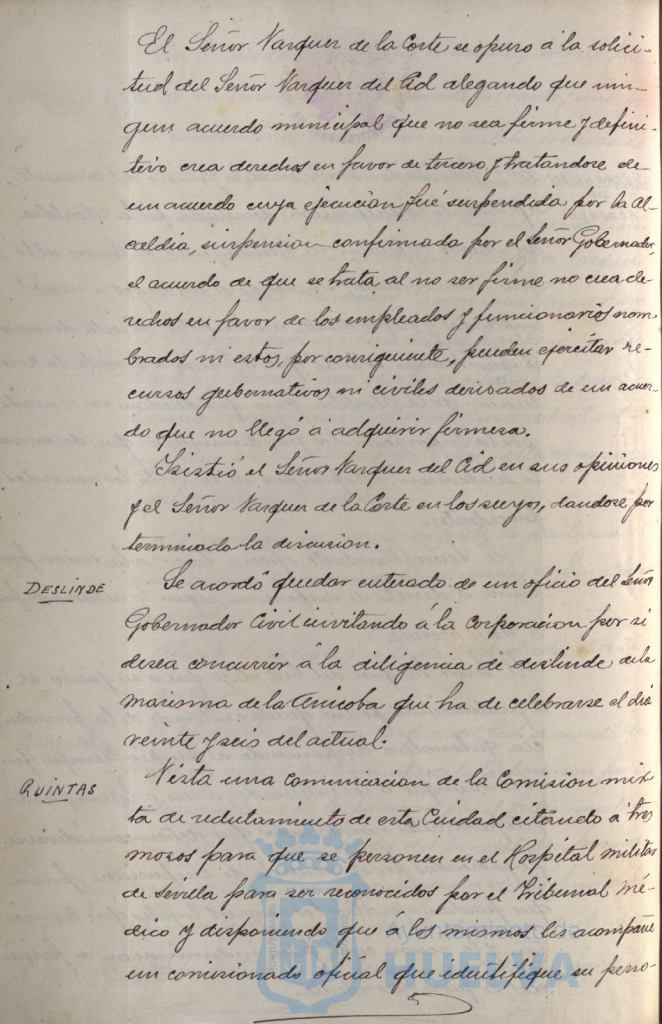 El Señor Vazquez de la Corte se opuso á la solici-
tud del Señor Vazquez del Cid alegando que nin-
gun acuerdo municipal que no sea firme y defini-
tivo crea derechos en favor de tercero y tratandose de
un acuerdo cuya ejecucion fué suspendida por la Al-
caldia, suspension confirmada por el Señor Gobernador,
el acuerdo de que se trata al no ser firme no crea de-
rechos en favor de los empleados y funcionarios nom-
brados ni estos, por consiguiente, pueden ejercitar re-
cursos gubernativos ni civiles derivados de un acuer-
do que no llegó á adquirir firmeza.
Isistió el Señor Vazquez del Cid en sus opiniones
y el Señor Vazquez de la Corte en los suyos, dandose por
terminada la discusion.
DESLINDE
Se acordó quedar enterado de un oficio del Señor
Gobernador Civil invitando á la corporacion por si
desea concurrir á la diligencia de deslinde de la
marisma de la Anicoba que ha de celebrarse el dia
veinte y seis del actual.
QUINTAS
Vista una comunicacion de la Comision mix-
ta de reclutamiento de esta Ciudad citando á tres
mozos para que se personen en el Hospital militar
de Sevilla para ser reconocidos por el Tribunal mé-
dico y disponiendo que á los mismos les acompañe
un comisionado oficial que identifique su perso-
Ayuntamiento de
HUELVA